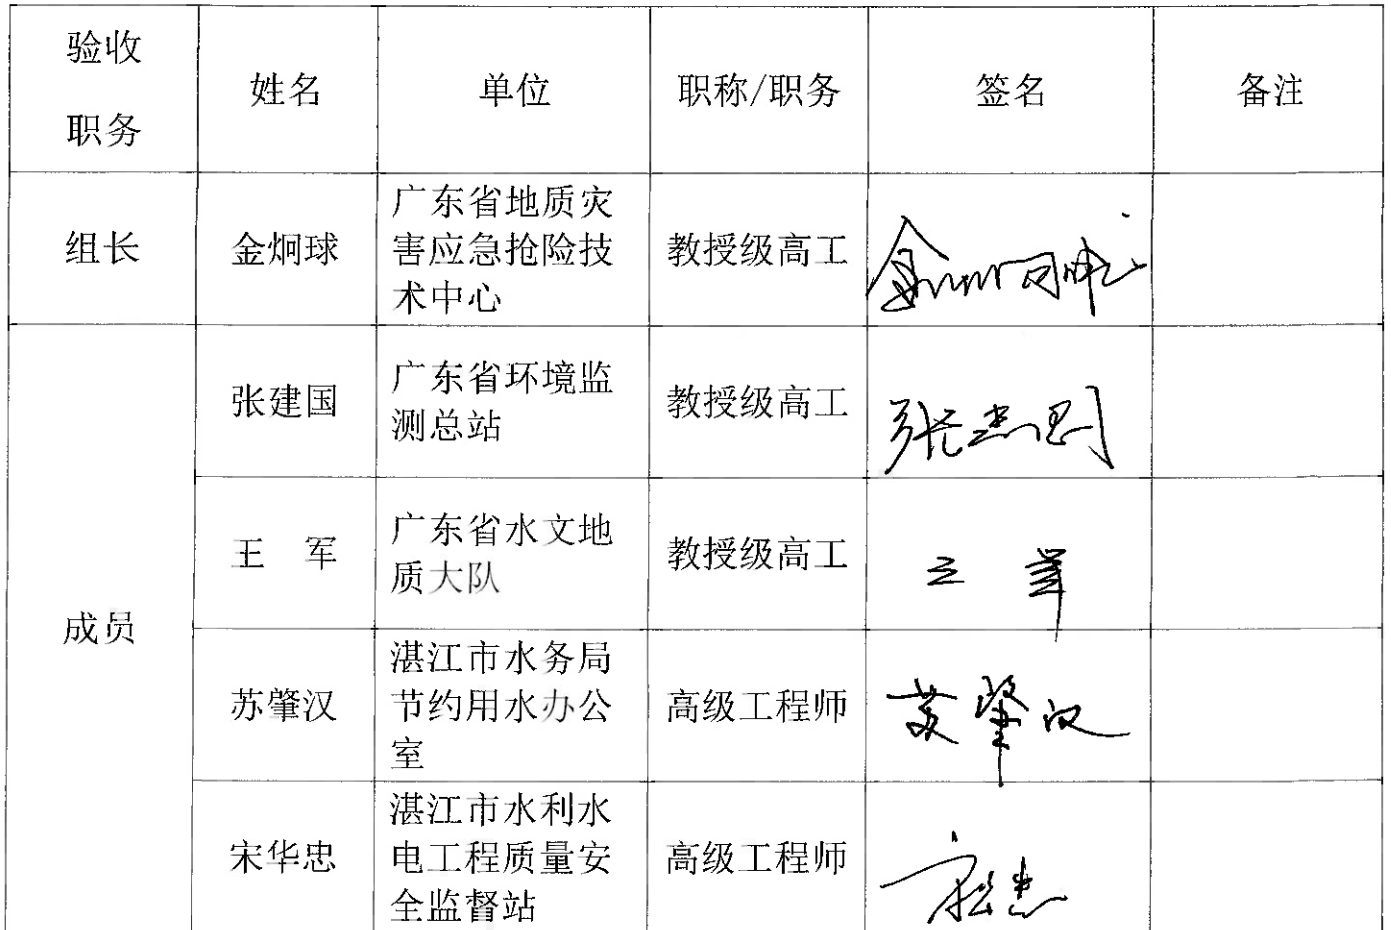 验收
职务
姓名
单位
职称/职务
签名
备注
组长
金炯球
广东省地质灾
害应急抢险技
术中心
教授级高工
金炯球
成员
张建国
广东省环境监
测总站
教授级高工
张建国
王 军
广东省水文地
质大队
教授级高工
王 军
苏肇汉
湛江市水务局
节约用水办公
室
高级工程师
苏肇汉
宋华忠
湛江市水利水
电工程质量安
全监督站
高级工程师
宋华忠